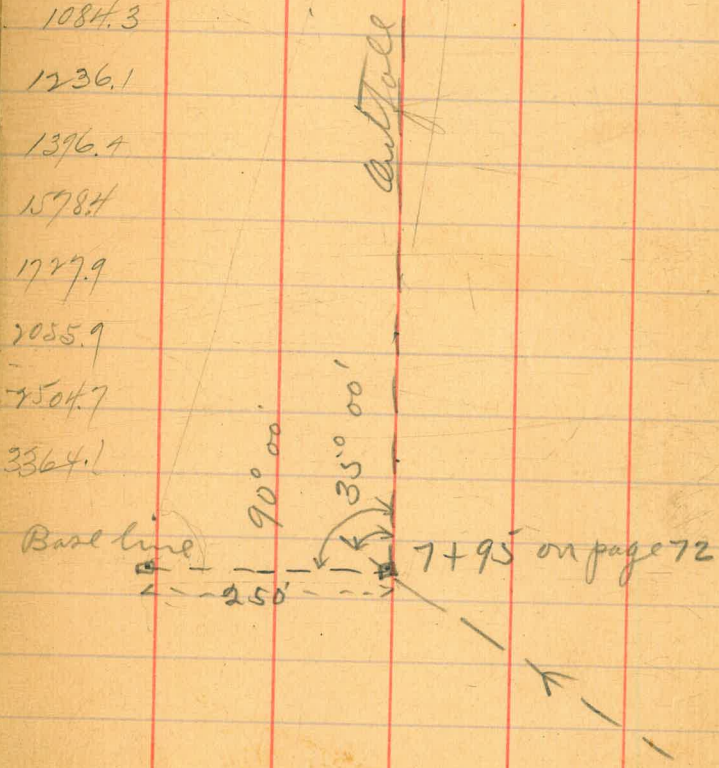 1084.3
1236.1
1396.4
1578.4
1727.9
2055.9
2504.7
3364.1
Outfall
90° 00'
35° 00'
Base line
7+95 on page 72
250'